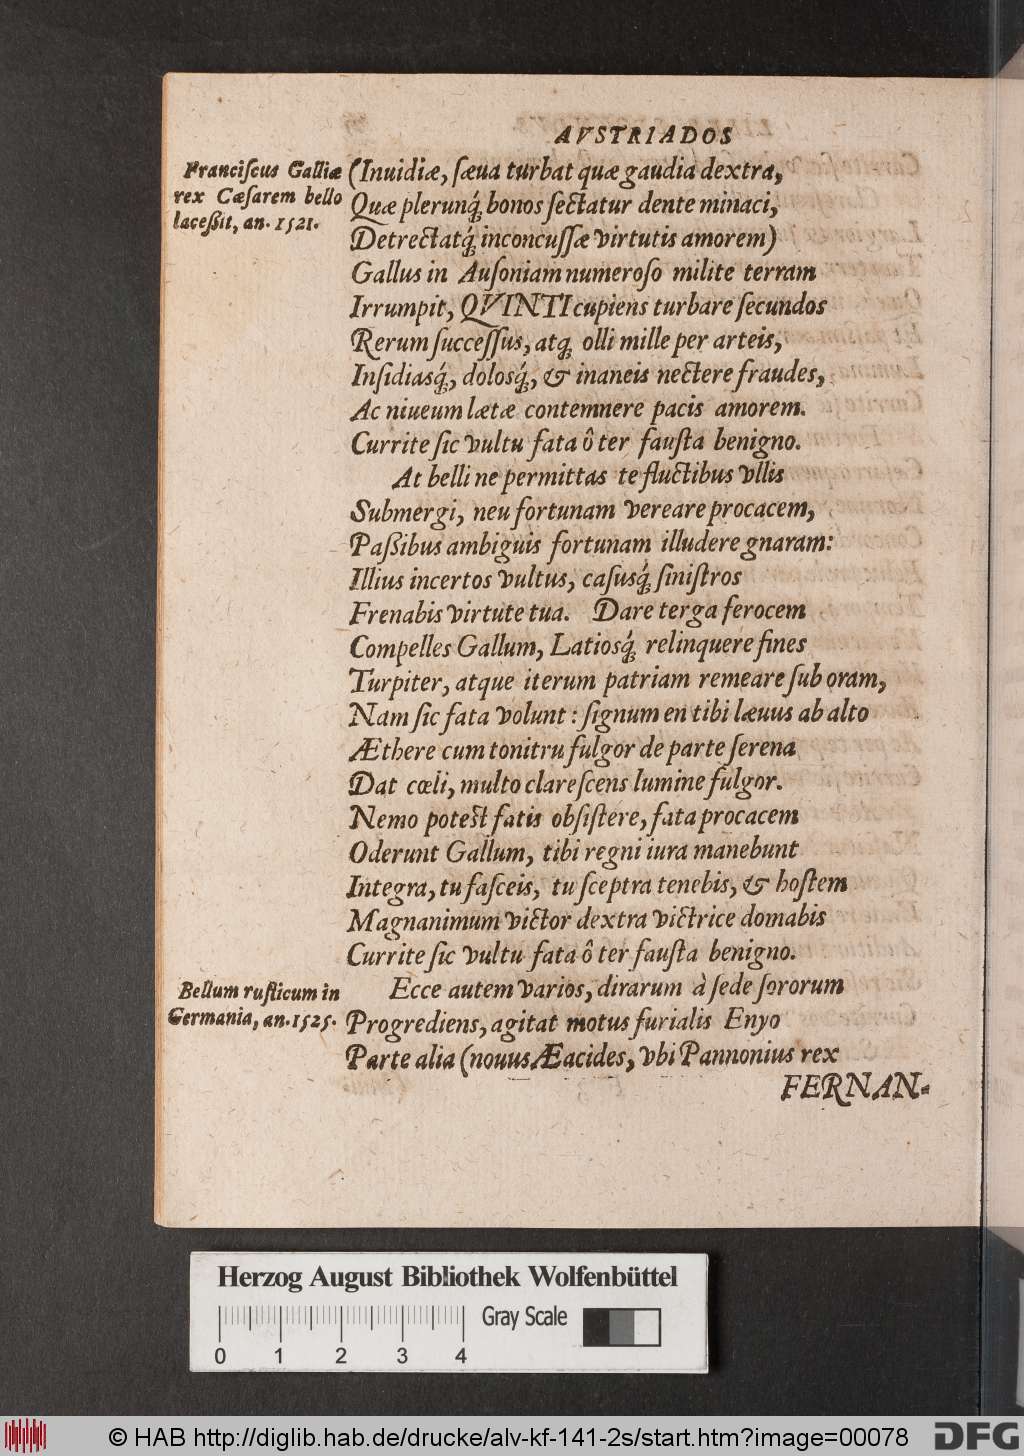 AVSTRIADOS
Franciſcus Galliæ
rex Cæſarem bello
laceßit, an. 1521.
(Inuidiæ, ſæua turbat quæ gaudia dextra,
Quæ plerunq́; bonos ſectatur dente minaci,
Detrectatq́; inconcuſſæ virtutis amorem)
Gallus in Auſoniam numeroſo milite terram
Irrumpit, QVINTI cupiens turbare ſecundos
Rerum ſucceſſus, atq; olli mille per arteis,
Inſidiasq́;, dolosq́;, & inaneis nectere fraudes,
Ac niueum lætæ contemnere pacis amorem.
Currite ſic vultu fata ô ter fauſta benigno.
At belli ne permittas te fluctibus vllis
Submergi, neu fortunam vereare procacem,
Paßibus ambiguis fortunam illudere gnaram:
Illius incertos vultus, caſusq́; ſiniſtros
Frenabis virtute tua. Dare terga ferocem
Compelles Gallum, Latiosq́; relinquere fines
Turpiter, atque iterum patriam remeare ſub oram,
Nam ſic fata volunt: ſignum en tibi læuus ab alto
Æthere cum tonitru fulgor de parte ſerena
Dat cœli, multo clareſcens lumine fulgor.
Nemo potest fatis obſiſtere, fata procacem
Oderunt Gallum, tibi regni iura manebunt
Integra, tu faſceis, tu ſceptra tenebis, & hoſtem
Magnanimum victor dextra victrice domabis
Currite ſic vultu fata ô ter fauſta benigno.
Bellum ruſticum in
Germania, an. 1525.
Ecce autem varios, dirarum à ſede ſororum
Progrediens, agitat motus furialis Enyo
Parte alia (nouus Æacides, vbi Pannonius rex
FERNAN-
Herzog August Bibliothek Wolfenbüttel
Gray Scale
0 1 2 3 4
© HAB http://diglib.hab.de/drucke/alv-kf-141-2s/start.htm?image=00078
DFG